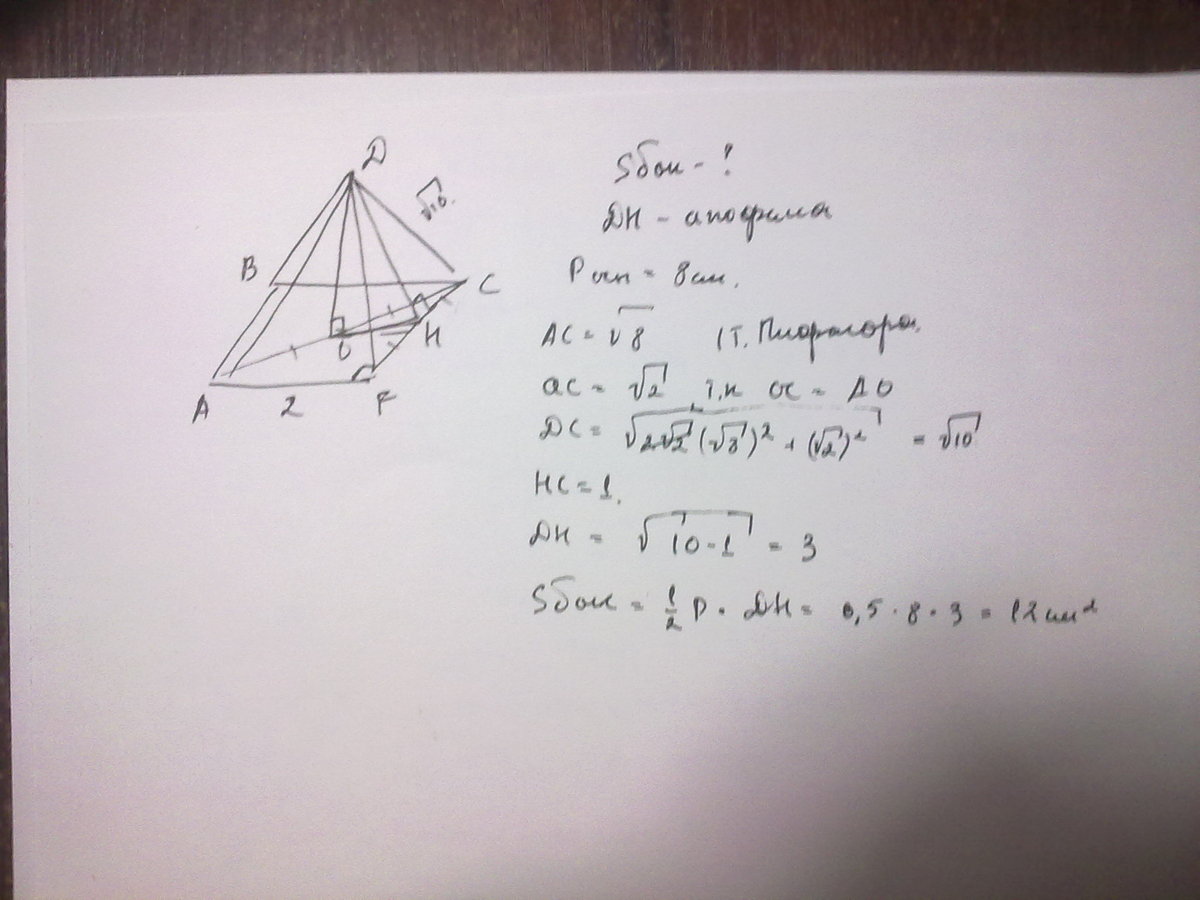 D
√10.
B
C
O
H
A
2
F
Sбок - ?
DH - апофема
Pосн = 8см.
AC = √8 (Т. Пифагора.
OC = √2 т.к OC = AO
DC = (√8)² + (√2)² = √10
HC = 1.
DH = √10-1 = 3
Sбок = 1/2 P · DH = 0,5 · 8 · 3 = 12см²